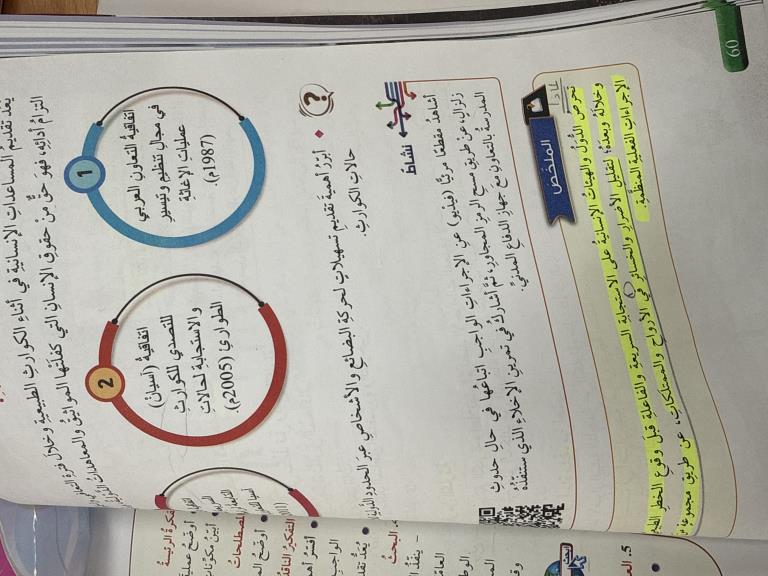 يُعَدُّ تقديمُ المساعداتِ الإنسانيةِ في أثناءِ الكوارثِ الطبيعيةِ وخلالَ فترةِ
التزامُ أدائِهِ، فهوَ حقٌّ منْ حقوقِ الإنسانِ التي كفلَتْها المواثيقُ والمعاهداتُ
1
اتفاقيةُ التعاونِ العربي
في مجالِ تنظيمِ وتيسيرِ
عملياتِ الإغاثةِ
(1987م).
2
اتفاقيةُ (آسيان)
للتصدي للكوارثِ
والاستجابةِ لحالاتِ
الطوارئِ (2005م).
أُبرِزُ أهميةَ تقديمِ تسهيلاتٍ لحركةِ البضائعِ والأشخاصِ عبرَ الحدودِ
حالاتِ الكوارثِ.
نشاط
أشاهدُ مقطعًا مرئيًّا (فيديو) عنِ الإجراءاتِ الواجبِ اتباعُها في حالِ حدوثِ
زلزالٍ، عنْ طريقِ مسحِ الرمزِ المجاورِ، ثمَّ أشاركُ في تمرينِ الإخلاءِ الذي ستنفّذُهُ
المدرسةُ بالتعاونِ معَ جهازِ الدفاعِ المدنيِّ.
الملخص
لماذا
تحرصُ الدُّوَلُ والهيئاتُ الإنسانيةُ على الاستجابةِ السريعةِ والفاعلةِ قبلَ وقوعِ الخطرِ
وخلالَهُ وبعدَهُ؛ لتقليلِ الأضرارِ والخسائرِ في الأرواحِ والممتلكاتِ، عن طريقِ مجموعةٍ
الإجراءاتِ الفعليةِ المنظَّمةِ.
60
الفكرةُ الرئيسةُ
أوضّحُ
المصطلحاتُ
أوضّحُ
التفكيرُ الناقدُ
أفسّرُ
يُعَدُّ
البحثُ
5.